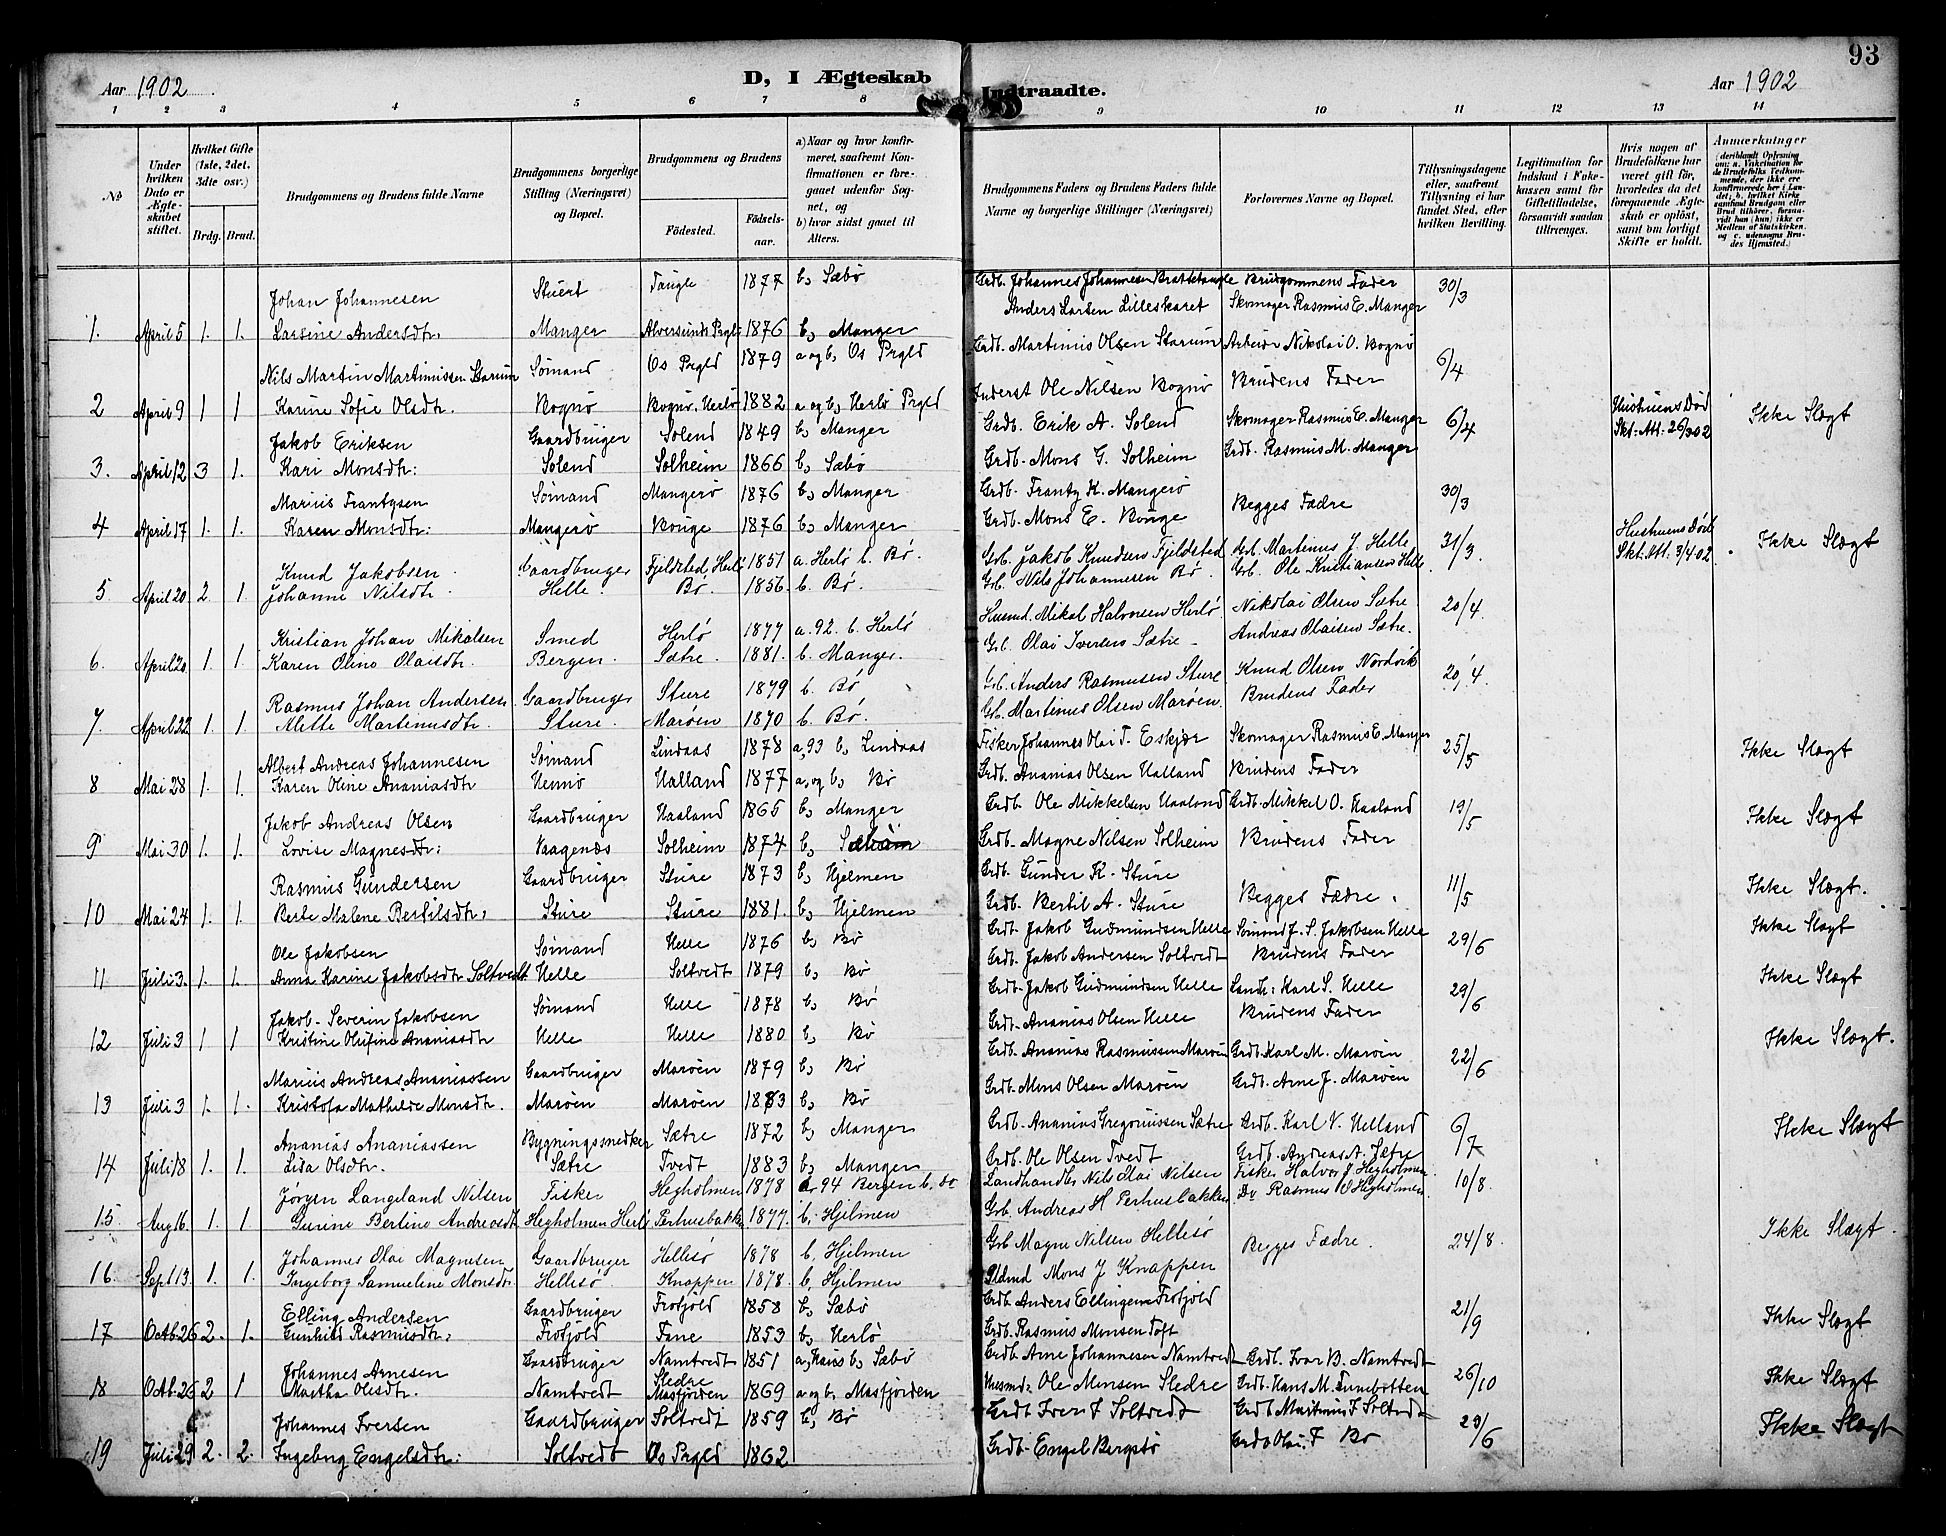 93
Aar 1902
D, I Ægteskab Indtraadte.
Aar 1902
1 2 3 4 5 6 7 8 9 10 11 12 13 14
No
Under hvilken Dato er Ægteskabet stiftet.
Hvilket Gifte (1ste, 2det, 3dte osv.)
Brdg. Brud.
Brudgommens og Brudens fulde Navne
Brudgommens borgerlige Stilling (Næringsvei) og Bopæl.
Brudgommens og Brudens
Födested. Födsels-aar.
a) Naar og hvor konfirmeret, saafremt Konfirmationen er foregaaet udenfor Sognet, og b) hvor sidst gaaet til Alters.
Brudgommens Faders og Brudens Faders fulde Navne og borgerlige Stillinger (Næringsvei)
Forlovernes Navne og Bopæl.
Tillysningsdagene eller, saafremt Tillysning ei har fundet Sted, efter hvilken Bevilling.
Legitimation for Indskud i Enkekassen samt for Giftetilladelse, forsaavidt saadan tiltrænges.
Hvis nogen af Brudefolkene har været gift för, hvorledes da det foregaaende Ægteskab er oplöst, samt om lovligt Skifte er holdt.
Anmærkninger
Johan Johannesen Stuert Tangle 1877 b, Sæbö Grdb. Johannes Johannesen Brattetangle Brudgommens Fader 30/3
1. April 5 1. 1. Larsine Andersdtr. Manger Alversunds Prgld 1876 b, Manger Anders Larsen Lilleskaret Skomager Rasmus E. Manger
Nils Martin Martinussen Storum Sömand Os Prgld 1879 a og b, Os Prgld Grdb. Martinus Olsen Storum Arbeider Nikolai O. Bognö 6/4
2 April 9 1 1 Karine Sofie Olsdtr. Bognö Bognö, Herlö 1882 a og b, Herlö Prgld Inderst Ole Nilsen Bognö Brudens Fader
Jakob Eriksen Gaardbruger Solend 1849 b, Manger Grdb. Erik A. Solend Skomager Rasmus E. Manger 6/4 Hustruens Död Skt. Att. 26/3 02 Ikke Slægt
3. April 12 3 1. Kari Monsdtr: Solend Solheim 1866 b, Sæbö Grdb. Mons G. Solheim Grdb. Rasmus M. Manger
Marius Frantzsen Sömand Mangerö 1876 b, Manger Grdb. Frantz K. Mangerö Begges Fædre 30/3
4 April 17 1. 1. Karen Monsdtr: Mangerö Bouge 1876 b, Manger Grdb. Mons E. Bouge
Knud Jakobsen Gaardbruger Fjeldsted, Herlö 1851 a. Herlö b. Bö. Grb. Jakob Knudsen Fjeldsted Grb. Martinus J. Helle 31/3. Hustruens Död Skt. Att. 3/4 02. Ikke Slægt
5 April 20 2. 1 Johanne Nilsdtr. Helle. Bö. 1856. b. Bö. Grb. Nils Johannesen Bö. Grb. Ole Kristiansen Helle
Kristian Johan Mikalsen Smed Herlö 1877 a. 92. b. Herlö Husmd. Mikal Halvorsen Herlö Nikolai Olsen Sætre 20/4
6. April 20 1. 1. Karen Oline Olaisdtr. Bergen. Sætre. 1881. b. Manger. Grb. Olai Iversen Sætre Andreas Olaisen Sætre.
Rasmus Johan Andersen Gaardbruger Sture 1879 b. Bö Grb. Anders Rasmussen Sture Knud Olsen Nordvik 20/4.
7. April 22 1. 1. Alette Martinusdtr. Sture. Maröen 1870 b. Bö. Grb. Martinus Olsen Maröen. Brudens Fader
Albert Andreas Johannesen Sömand Lindaas 1878 a, 93 b, Lindaas Fisker Johannes Olai T. Eskjær Skomager Rasmus E. Manger 25/5 Ikke Slægt
8 Mai 28 1. 1. Karen Oline Ananiasdtr Hennö Halland 1877 a, og b, Bö Grdb. Ananias Olsen Halland Brudens Fader
Jakob Andreas Olsen Gaardbruger Haaland 1865 b, Manger Grdb. Ole Mikkelsen Haaland Grdb. Mikkel O. Haaland 19/5 Ikke Slægt
9 Mai 30 1. 1. Lovise Magnesdtr: Vaagenæs Solheim 1874 b, Grdb. Magne Nilsen Solheim Brudens Fader
Rasmus Gundersen Gaardbruger Sture 1873 b, Hjelmen Grdb. Gunder K. Sture Begges Fædre. 11/5 Ikke Slægt.
10 Mai 24 1. 1. Berte Malene Bertilsdtr: Sture Sture 1881. b, Hjelmen Grdb. Bertil A. Sture
Ole Jakobsen Sömand Helle 1876 b, Bö Grdb. Jakob Gudmundsen Helle Sömand J. S. Jakobsen Helle 29/6 Ikke Slægt
11 Juli 3. 1. 1. Anna Karine Jakobsdtr Soltvedt Helle Soltvedt 1879 b, Bö Grdb. Jakob Andersen Soltvedt Brudens Fader
Jakob Severin Jakobsen Sömand Helle 1878 b, Bö Grdb. Jakob Gudmundsen Helle Karl S. Helle 29/6 Ikke Slægt
12 Juli 3 1 1 Kristine Olufine Ananiasdtr Helle Helle 1880 b, Bö Grdb. Ananias Olsen Helle Brudens Fader
Marius Andreas Ananiassen Gaardbruger Maröen 1879 b, Bö Grdb. Ananias Rasmussen Maröen Grdb. Karl M. Maröen 22/6 Ikke Slægt.
13 Juli 3 1. 1. Kristofa Mathilde Monsdtr. Maröen Maröen 1883 b, Bö Grdb. Mons Olsen Maröen Grdb. Arne J. Maröen
Ananias Ananiassen Bygningssnedker Sætre 1872 b, Manger Grdb. Ananias Gregoriussen Sætre Grdb. Karl V. Helland 6/7 Ikke Slægt
14 Juli 18 1. 1. Lisa Olsdtr. Sætre Tvedt 1883 b, Manger Grdb. Ole Olsen Tvedt Grdb. Andreas A. Sætre
Jörgen Langeland Nilsen Fisker Hegholmen 1878 a. 94 Bergen b. do Landhandler Nils Olai Nilsen Fisker Halvor J Hegholmen 10/8.
15 Aug 16. 1. 1 Gurine Bertine Andreasdtr. Hegholmen Herlö Perhusbakken 1877. b. Hjelmen Grb. Andreas H Perhusbakken Do Rasmus O Hegholmen.
Johannes Olai Magnesen Gaardbruger Hellisö 1878 b, Hjelmen Grb Magne Nilsen Hellisö Begges Fædre. 24/8. Ikke Slægt.
16. Sept 13. 1. 1. Ingeborg Samueline Monsdtr. Hellisö. Knappen 1878. b, Hjelmen Mons J Knappen
Elling Andersen Gaardbruger Frofjöld 1858 b, Sæbö Grdb. Anders Ellingsen Frofjöld 21/9 Ikke Slægt
17 Octb. 26 2. 1. Gunhild Rasmusdtr: Frofjöld Fane 1853 b, Herlö Grdb. Rasmus Monsen Toft
Johannes Arnesen Gaardbruger Namtvedt 1851 a, Haus b, Sæbö Grdb. Arne Johannesen Namtvedt Grdb. Ivar B. Namtvedt 26/10 Ikke Slægt
18 Octb. 26 2 1 Martha Olsdtr. Namtvedt Sledre Masfjorden 1869 a og b, Masfjorden Husmd: Ole Monsen Sledre Grdb. Hans M.
Johannes Iversen Gaardbruger Soltvedt 1859 b, Bö Grdb Iver J Soltvedt Grdb Martinus J Soltvedt 29/6 Ikke Slægt
19 Juli 29 2. 2. Ingeborg Engelsdtr: Soltvedt Os Prgld 1862 Grdb. Engel Bergstö Grdb Olai J Bö